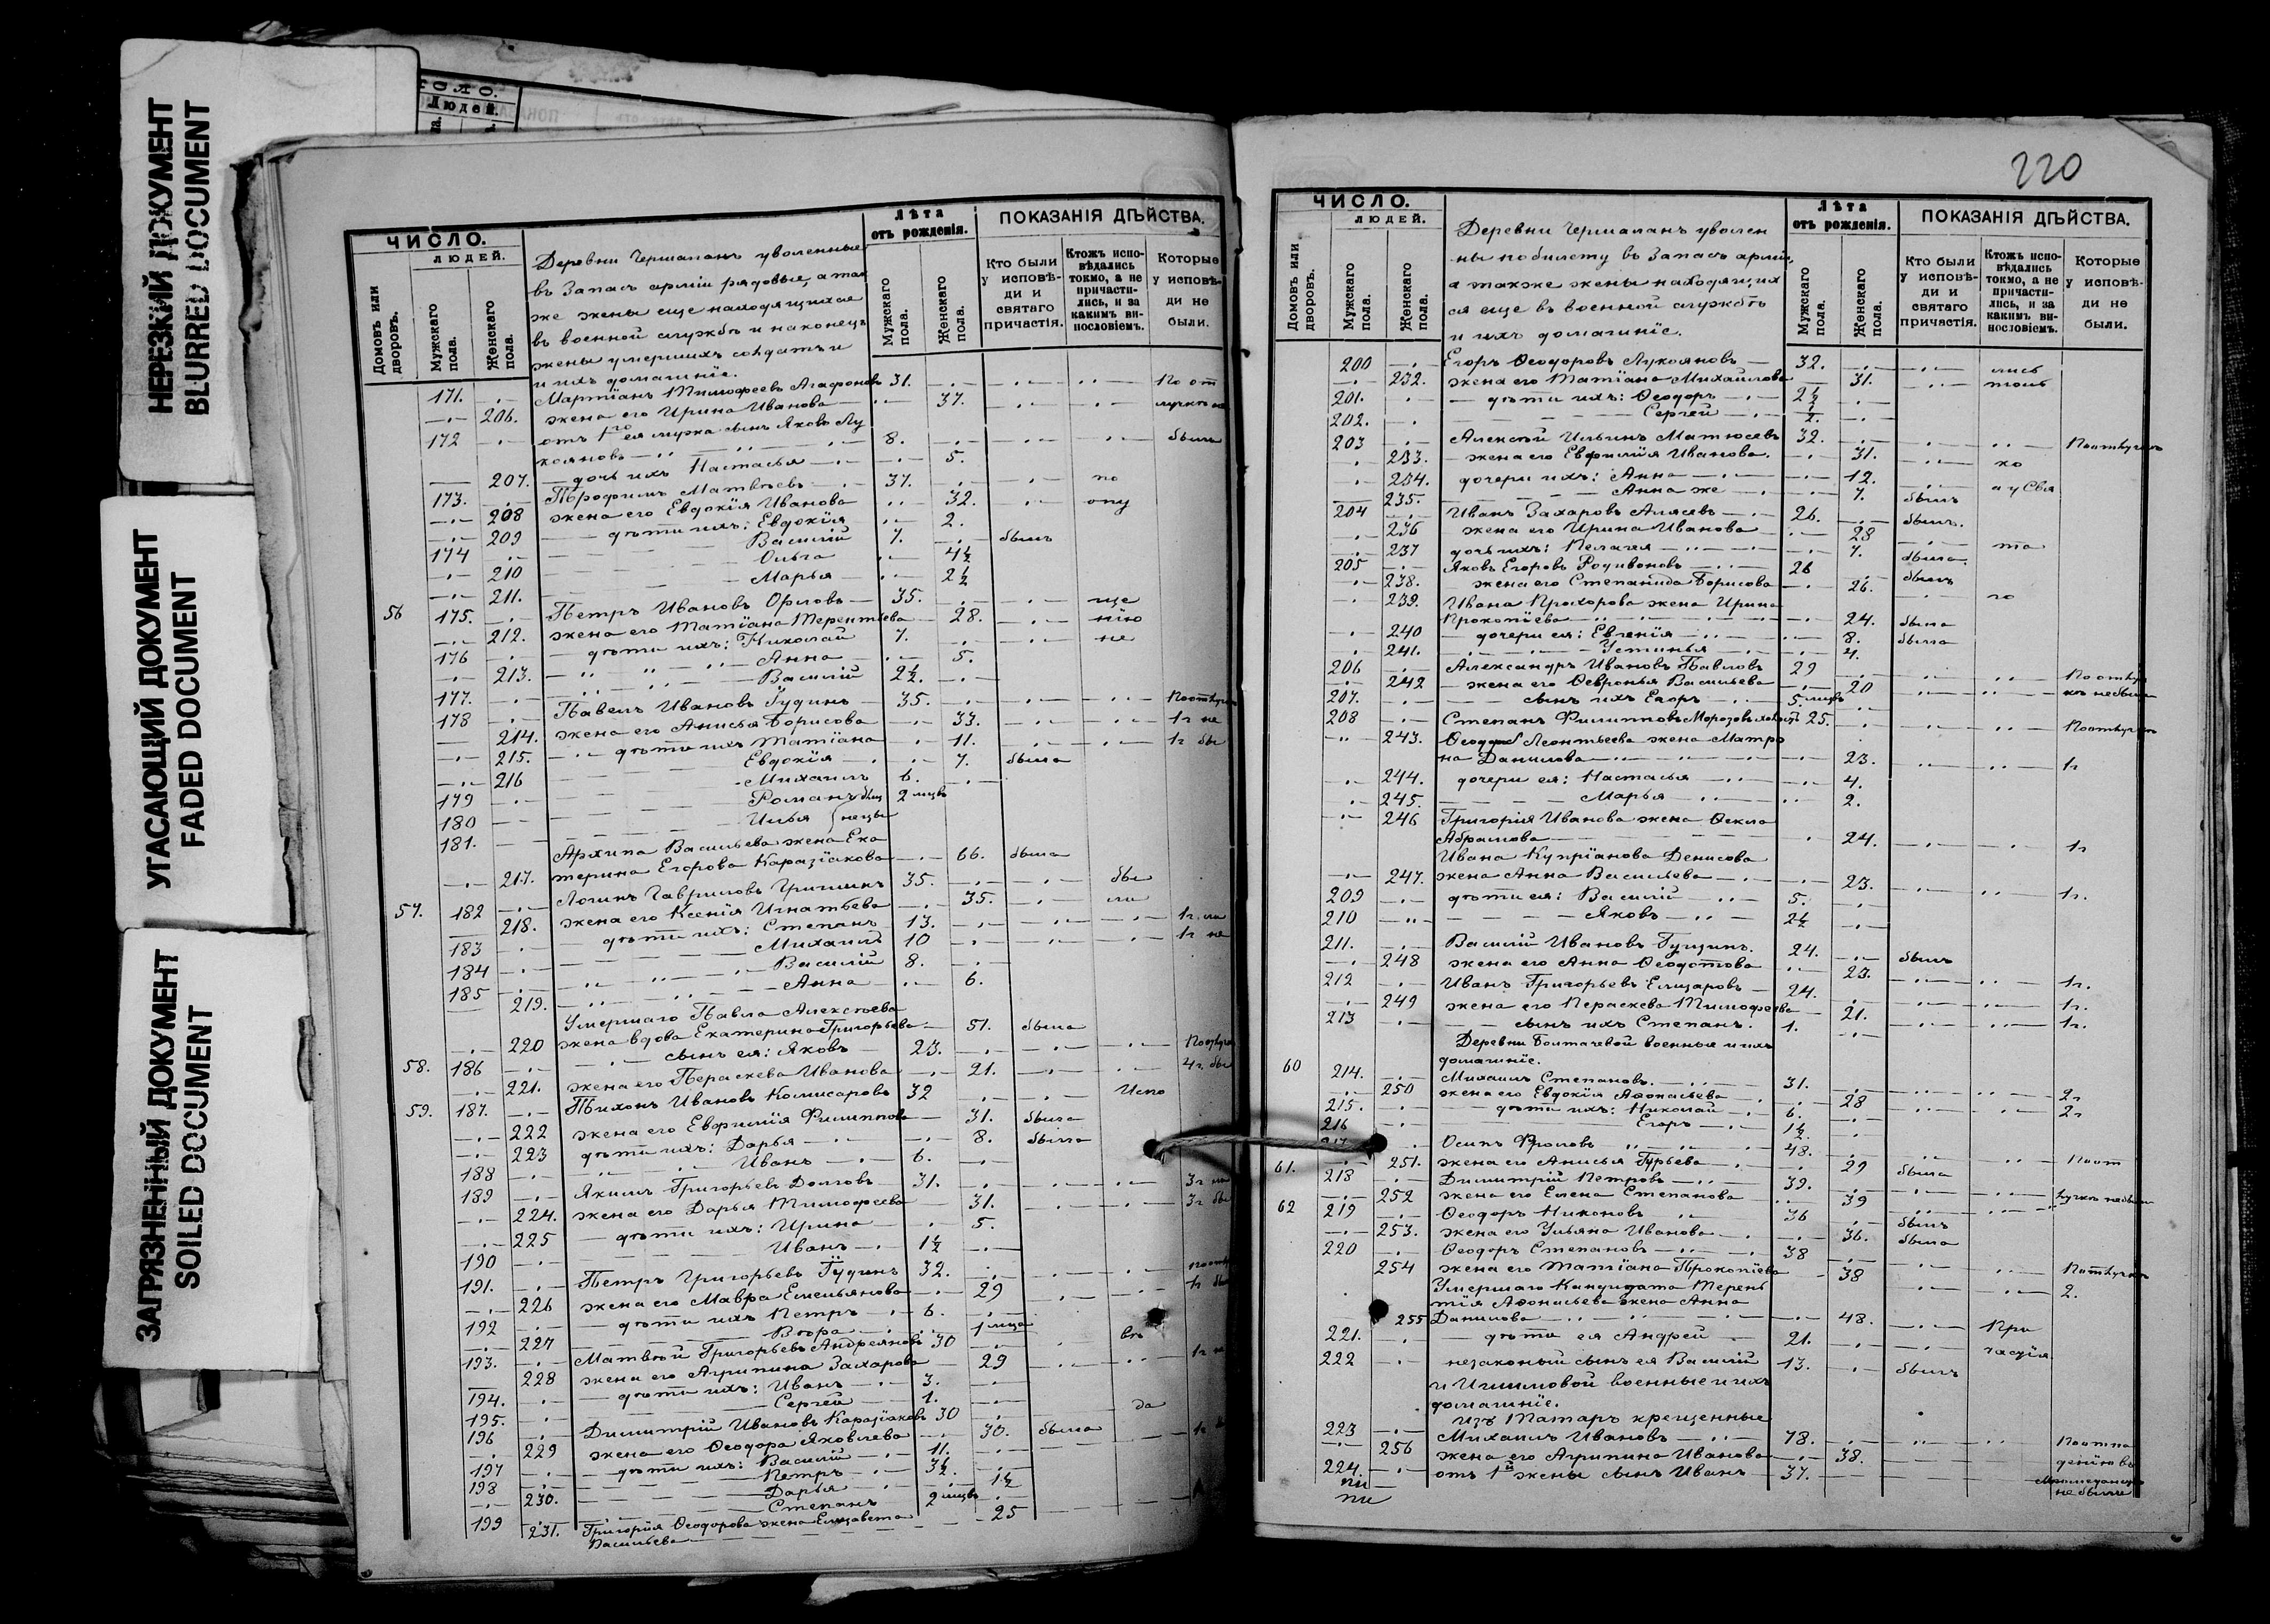 НЕРЕЗКИЙ ДОКУМЕНТ
BLURRED DOCUMENT
УГАСАЮЩИЙ ДОКУМЕНТ
FADED DOCUMENT
ЗАГРЯЗНЕННЫЙ ДОКУМЕНТ
SOILED DOCUMENT
Людей.
ЧИСЛО.
ЛЮДЕЙ.
Домовъ или дворовъ.
Мужскаго пола.
Женскаго пола.
Деревни Чершапанъ уволенные
въ Запасъ арміи рядовые, а так
же жены еще находящихся
въ военной службѣ и наконецъ
жены умершихъ солдатъ и
и ихъ домашніе.
Лѣта
отъ рожденія.
Мужскаго пола.
Женскаго пола.
ПОКАЗАНІЯ ДѢЙСТВА.
Кто были у исповѣди и святаго причастія.
Ктожъ исповѣдались токмо, а не причастились, и за какимъ винословіемъ.
Которые у исповѣди не были.
171. Мартіанъ Тимофеевъ Агафоновъ 31. По от
206. жена его Ирина Иванова 37. лучкѣ не
172 отъ 1го ея мужа сынъ Яковъ Лу
кояновъ 8. былъ
207. дочь ихъ Настасья 5.
173. Трофимъ Матвѣевъ 37. по
208 жена его Евдокія Иванова 32. опу
209 дѣти ихъ: Евдокія 2.
174 Василій 7. былъ
210 Ольга 4½
211. Марья 2½
56 175. Петръ Ивановъ Орловъ 35. ще
212. жена его Татіана Терентьева 28. нію
176 дѣти ихъ: Николай 7. не
213. Анна 5.
177. Василій 2½.
178 Павелъ Ивановъ Гудинъ 35. По отлуч
214. жена его Анисья Борисова 33. 1г не
215. дѣти ихъ Татіана 11. 1г бы
216 Евдокія 7. была
179 Михаилъ 6.
180 Романъ близ 2 мцвъ
181. Илья нецы
Архипа Васильева жена Ека
217. терина Егорова Каразіакова 66. была
57. 182 Логинъ Гавриловъ Гришинъ 35. бы
218. жена его Ксенія Игнатьева 35. ли
183 дѣти ихъ: Степанъ 13.
184 Михаилъ 10
185 Василій 8.
219. Анна 6.
Умершаго Павла Алексѣева
220 жена вдова Екатерина Григорьева 51. была
58. 186 сынъ ея: Яковъ 23.
221. жена его Параскева Иванова 21.
59. 187. Тихонъ Ивановъ Комисаровъ 32 Испо
222 жена его Евфимія Филиппова 31. была
223 дѣти ихъ: Дарья 8. была
188 Иванъ 6.
189 Якимъ Григорьевъ Долговъ 31.
224. жена его Дарья Тимофеева 31.
225 дѣти ихъ: Ирина 5.
190 Иванъ 1½
191. Петръ Григорьевъ Гудинъ 32.
226 жена его Мавра Емельянова 29
192 дѣти ихъ Петръ 6.
227 Вѣра 1 мца
193. Матвѣй Григорьевъ Андреяновъ 30 въ
228 жена его Агрипина Захарова 29
194. дѣти ихъ: Иванъ 3.
195. Сергей 1.
196 Димитрій Ивановъ Каразіаковъ 30 да
229 жена его Ѳеодора Яковлева 30. была
197 дѣти ихъ: Василій 11.
198 Петръ 3½.
230. Дарья 1½
199 Степанъ 2 мцвъ
231. Григорія Ѳеодорова жена Елизавета 25
Васильева
220
ЧИСЛО.
ЛЮДЕЙ.
Домовъ или дворовъ.
Мужскаго пола.
Женскаго пола.
Деревни Чершапанъ уволен
ны по билету въ Запасъ арміи,
а также жены находящих
ся еще въ военной службѣ
и ихъ домашніе.
Лѣта
отъ рожденія.
Мужскаго пола.
Женскаго пола.
ПОКАЗАНІЯ ДѢЙСТВА.
Кто были у исповѣди и святаго причастія.
Ктожъ исповѣдались токмо, а не причастились, и за какимъ винословіемъ.
Которые у исповѣди не были.
200 Егоръ Ѳеодоровъ Лукояновъ 32. лись
232. жена его Татіана Михайлова 31. токъ
201. дѣти ихъ: Ѳеодоръ 2½
202. Сергей ½.
203 Алексѣй Ильинъ Матюсевъ 32. По отлучкѣ
233. жена его Евфимія Иванова. 31. ко
234. дочери ихъ: Анна 12. а у Свя
235. Анна же 7. былъ
204 Иванъ Захаровъ Алясевъ 26. былъ.
236 жена его Ирина Иванова 28
237 дочь ихъ: Пелагея 7. была. та
205 Яковъ Егоровъ Родивоновъ 26 былъ
238. жена его Степанида Борисова 26.
239. Ивана Прохорова жена Ирина го
Прокопіева 24. была
240 дочери ея: Евгенія 8. была
241. Устинья 4.
206 Александръ Ивановъ Павловъ 29 По отлуч
242 жена его Ѳевронья Васильева 20 кѣ не были
207. сынъ ихъ Егоръ 5 мцвъ
208 Степанъ Филипповъ Морозовъ холост 25. По отлучкѣ
243. Ѳеодора Леонтьева жена Матро
на Данилова 23. 1г
244. дочери ея: Настасья 4.
245. Марья 2.
246 Григорія Иванова жена Ѳекла
Абрамова 24. 1г
Ивана Купріанова Денисова
247. жена Анна Васильева 23. 1г.
209 дѣти ея: Василій 5.
210 Яковъ 2½
211. Василій Ивановъ Гущинъ. 24. былъ
248 жена его Анна Ѳеодотова 23.
212 Иванъ Григорьевъ Елизаровъ 24. 1г.
249 жена его Пераскева Тимофеева 21. 1г.
213 сынъ ихъ Степанъ. 1. 1г.
Деревни Болтачевой военныя и ихъ
домашніе.
60 214. Михаилъ Степановъ. 31. 2г
250 жена его Евдокія Аѳонасьева 28 2г
215. дѣти ихъ: Николай 6.
216 Егоръ 1½.
217 Осипъ Фроловъ 48. По от
61. 251. жена его Анисья Гурьева 29 была
218 Димитрій Петровъ 39. лучкѣ не были
252 жена его Елена Степанова 39
62 219 Ѳеодоръ Никоновъ 36 былъ
253. жена его Ульяна Иванова 36. была
220 Ѳеодоръ Степановъ 38 По отлучкѣ
254 жена его Татіана Прокопіева 38 2.
Умершаго Кандидата Терень
тія Аѳонасьева жена Анна
255 Данилова 48. При
221. дѣти ея Андрей 21. частія
222 незаконный сынъ ея Василій 13. былъ
и Ишимовой военныя и ихъ
домашніе.
изъ Татаръ крещенные
223 Михаилъ Ивановъ 78. По отпа
256 жена его Агрипина Иванова 38. денію въ
224. отъ 1й жены сынъ Иванъ 37. Магометанство
не были